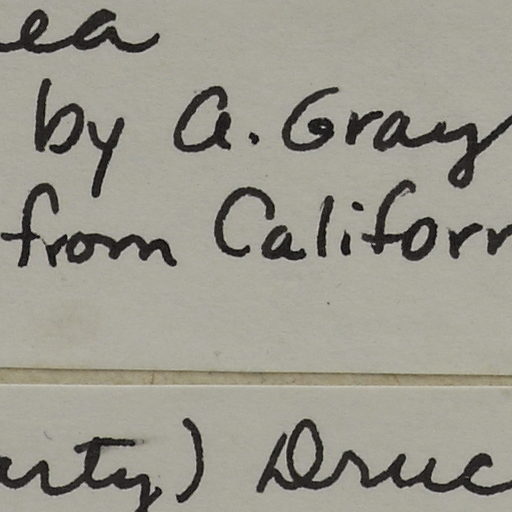 ea
by A. Gray
from Californ
arty) Druc